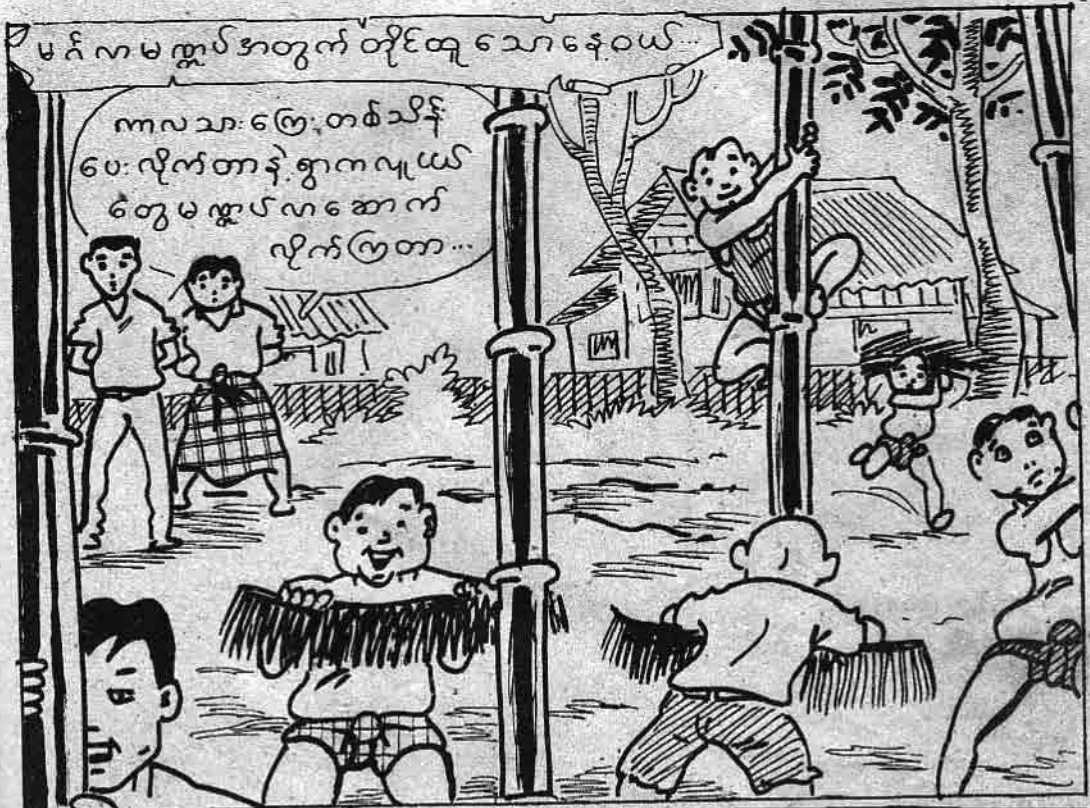 မင်္ဂလာမဏ္ဍပ်အတွက် တိုင်ထူ သောနေ့ဝယ်...
ကာလသားကြေး တစ်သိန်း
ပေးလိုက်တာနဲ့ ရွာကလူငယ်
တွေမဏ္ဍပ်လာဆောက်
လိုက်ကြတာ...